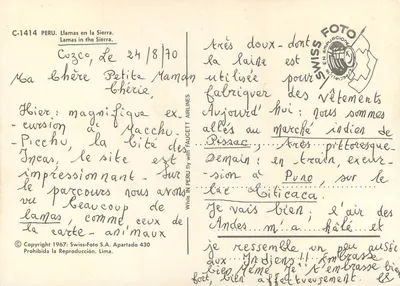 C-1414 PERU. Llamas en la Sierra.
Lamas in the Sierra.
Cuzco, Le 24/8/70
Ma Chère Petite Maman
Chérie,
Hier: magnifique ex-
cursion à Macchu-
-Picchu, la Cité des
Incas, le site est
impressionnant - Sur
le parcours nous avons
vu beaucoup de
lamas, comme ceux de
la carte - animaux
© Copyright 1967: Swiss-Foto S.A. Apartado 430
Prohibida la Reproducción. Lima.
While in PERU fly with FAUCETT AIRLINES
SWISS FOTO
très doux - dont
la laine est
utilisée pour
fabriquer des vêtements
Aujourd'hui: nous sommes
allés au marché indien de
Pissac, très pittoresque-
demain: en train, excur-
-sion à Puno, sur le
lac Titicaca.
Je vais bien; l'air des
Andes m'a hâlé et
je ressemble un peu aussi
aux Indiens!! embrasse
bien Mémé Je t'embrasse bien
fort, bien affectueusement